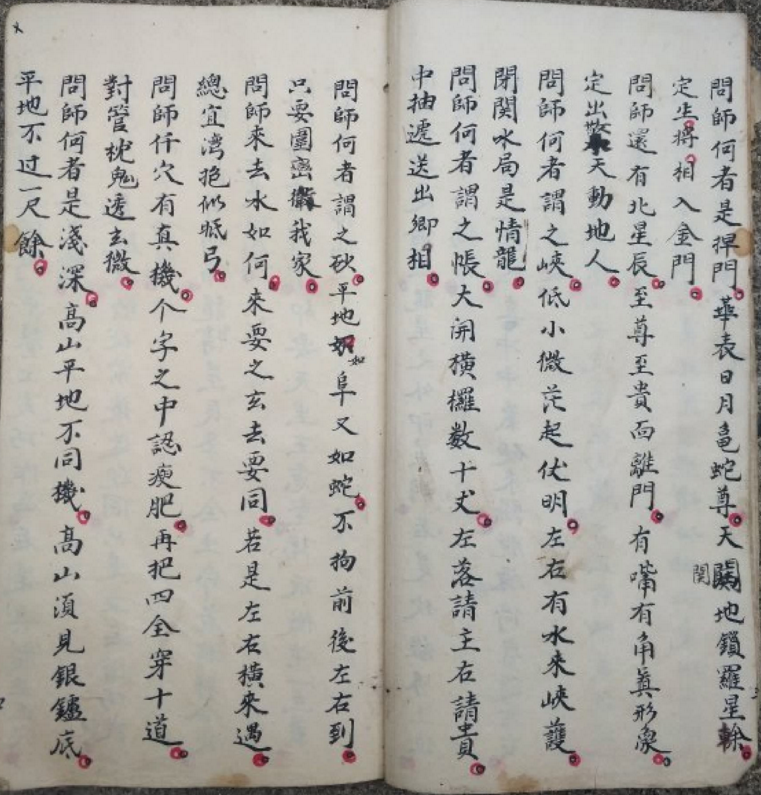 問師何者是捍門華表日月龜蛇尊天關地鎖羅星餘
定坐將相入金門
問師還有北星辰至尊至貴面離門有嘴有角真形象
定出驚天動地人
問師何者謂之峽低小微茫起伏明左右有水來峽護
閉関水局是情龍
問師何者謂之帳大開橫欏数十丈左落請主右請貴
中抽遞送出卿相
問師何者謂之砂平地如阜又如蛇不拘前後左右到
只要圍密衛我家
問師來去水如何來要之玄去要同若是左右橫來遇
總宜湾抱似眡弓
問師仟穴有真機个字之中認瘦肥再把四全穿十道
對管枕鬼透去微
問師何者是淺深高山平地不同機高山須見銀鑪底
平地不过一尺餘